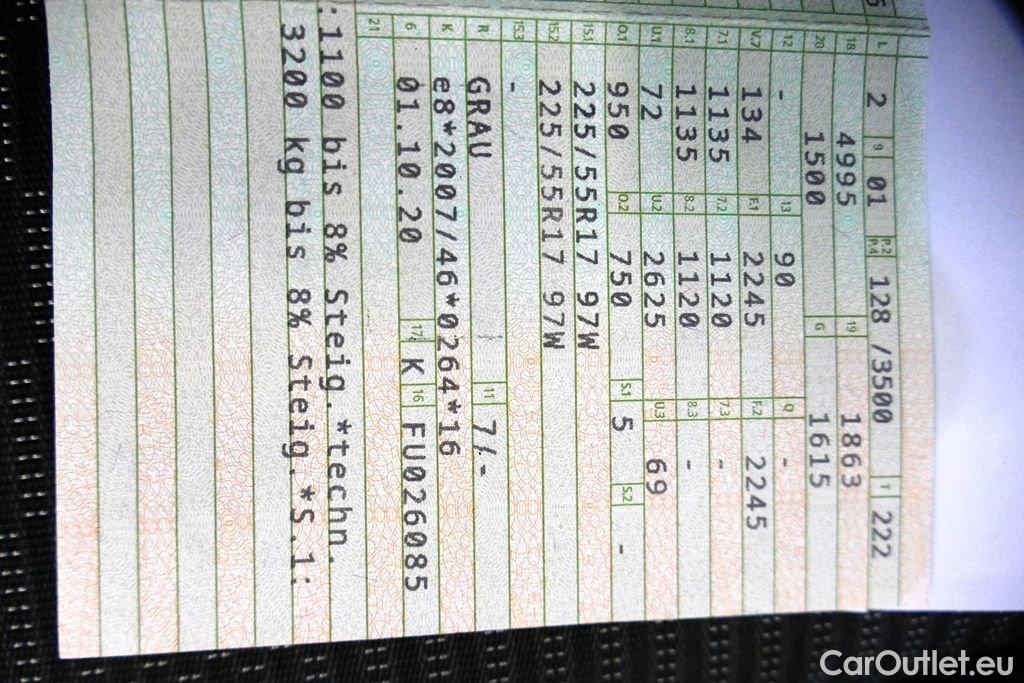 5
L 2 9 01 P.2 P.4 128 /3500 T 222
18 4995 19 1863
20 1500 G 1615
12 - 13 90 Q -
V.7 134 F.1 2245 F.2 2245
7.1 1135 7.2 1120 7.3 -
8.1 1135 8.2 1120 8.3 -
U.1 72 U.2 2625 U.3 69
O.1 950 O.2 750 S.1 5 S.2 -
15.1 225/55R17 97W
15.2 225/55R17 97W
15.3 -
R GRAU 11 7/-
K e8*2007/46*0264*16
6 01.10.20 17 K 16 FU026085
21
:1100 bis 8% Steig.*techn.
3200 kg bis 8% Steig.*S.1:
CarOutlet.eu